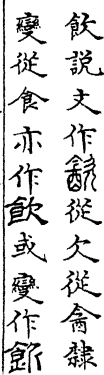 飲說文作㱃從欠從酓隸
變從食亦作飮或變作